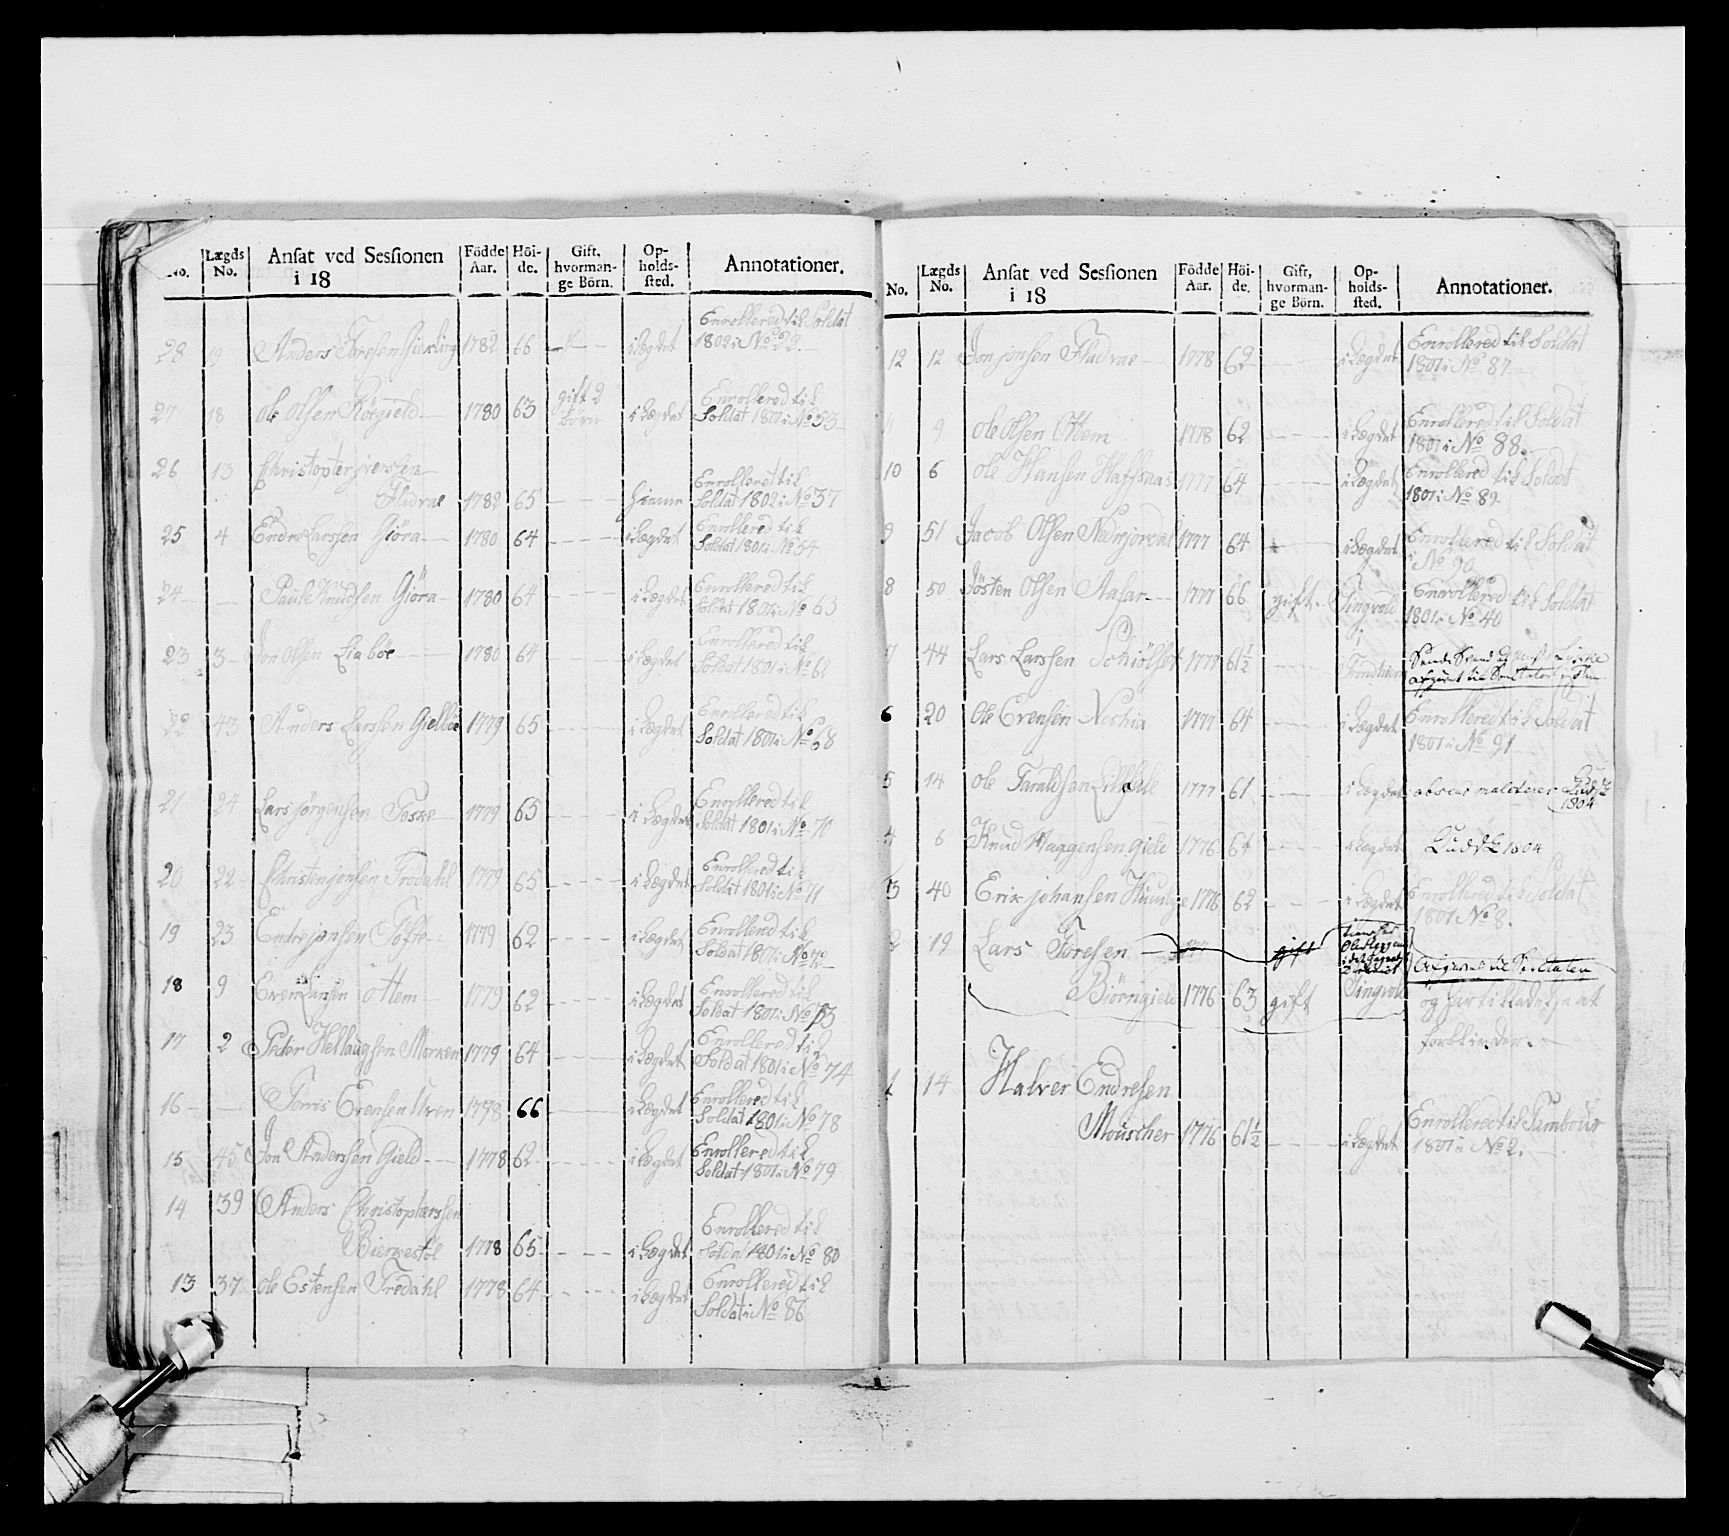 No. Lægds No. Ansat ved Sessionen i 18 Födde Aar. Höi-de. Gift, hvorman-ge Börn. Op-holds-sted. Annotationer.
28 19 Anders Toresen 1782 66 i Lægdet Enrollered til Soldat
1802 i No 29
27 18 ole olsen 1780 63 gift 2 börn i Lægdet Enrollered til
Soldat 1801 i No 53
26 13 Christopher jversen
Fladvae 1782 65 hiemme Enrollered til
Soldat 1802 i No 37
25 4 Endre Larssen Giöra 1780 64 i Lægdet Enrollered til
Soldat 1801 i No 54
24 Paul Knudsen Giöra 1780 64 i Lægdet Enrollered til
Soldat 1801 i No 63
23 3 Jon Olsen Liaböe 1780 64 i Lægdet Enrollered til
Soldat 1801 i No 62
22 43 Anders Larssen 1779 65 i Lægdet Enrollered til
Soldat 1801 i No 68
21 24 Lars jörgensen Toske 1779 65 i Lægdet Enrollered til
Soldat 1801 i No 70
20 22 Christen jonsen Trödahl 1779 65 i Lægdet Enrollered til
Soldat 1801 i No 71
19 23 Endre jonsen Tofte 1779 62 i Lægdet Enrollered til
Soldat 1801 i No 72
18 9 Even Larsen Ottem 1779 62 i Lægdet Enrollered til
Soldat 1801 i No 73
17 2 Peder Hellaugsen Morken 1779 64 i Lægdet Enrollered til
Soldat 1801 i No 74
16 Torris Evensen 1778 66 i Lægdet Enrollered til
Soldat 1801 i No 78
15 45 Jon Anderssen Gield 1778 62 i Lægdet Enrollered til
Soldat 1801 i No 79
14 39 Anders Christophersen
Bierkestöl 1778 65 i Lægdet Enrollered til
Soldat 1801 i No 80
13 37 ole Estensen Tredahl 1778 64 i Lægdet Enrollered til
Soldat i No 86
No. Lægds No. Ansat ved Sessionen i 18 Födde Aar. Höi-de. Gift, hvorman-ge Börn. Op-holds-sted. Annotationer.
12 12 Jon jonsen Fladvae 1778 62 i Lægdet Enrollered til Soldat
1801 i No 87
11 9 ole olsen Ottem 1778 62 i Lægdet Enrollered til Soldat
1801 i No 88.
10 6 ole Hansen Haffsnas 1777 64 i Lægdet Enrollered til Soldat
1801 i No 89
9 51 Jacob Olsen Nedrjordal 1777 64 i Lægdet Enrollered til Soldat
i No 90
8 50 Jösten Olsen 1777 66 gift Tingvold Enrollered til Soldat
1801 i No 40
7 44 Lars Larssen 1777 61½ Trondhiem
6 20 Ole Evensen 1777 64 i Lægdet Enrollered til Soldat
1801 i No 91
5 14 ole Taraldsen 1777 61 i Lægdet
1804
4 6 Knud Haggensen Gield 1776 64 i Lægdet 1804
3 40 Erik johansen 1776 62 i Lægdet Enrollered til Soldat
1801 No 8.
2 19 Lars Toresen gift
Biörngield 1776 63 gift Tingvold
og har tilladelse at
forblinder.
1 14 Halver Endresen
Mouscher 1776 61½ i Lægdet Enrollered til Tambour
1801 i No 2.